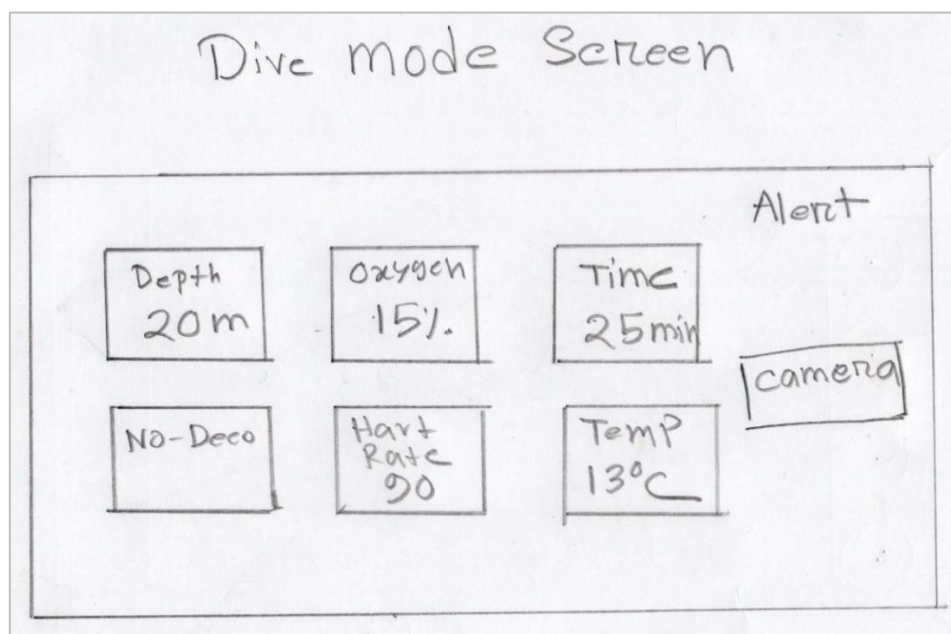 Dive mode Screen
Alert
Depth
20m
Oxygen
15%.
Time
25min
camera
No-Deco
Hart
Rate
90
Temp
13°C